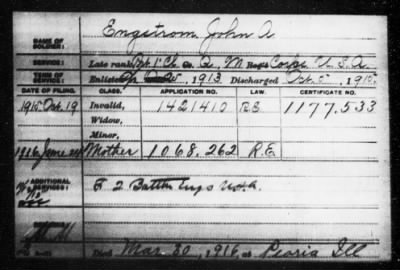 Engstrom, John A
NAME OF SOLDIER:
SERVICE: Late rank, Pvt 1 Cl Co. Q. M Reg't Corps U. S. A
TERM OF SERVICE: Enlisted 1913 Discharged Oct. 5, 1915
DATE OF FILING. CLASS. APPLICATION NO. LAW. CERTIFICATE NO.
1915 Oct. 19 Invalid, 1421410 1177.533
Widow,
Minor,
1916 June Mother 1068.262 R.E
ADDITIONAL SERVICES: F. 2 Battn Engs U.S.A.
Died Mar. 30, 1916 at Peoria Ill